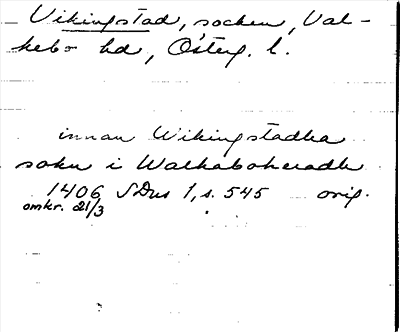 Vikingstad, socken, Val-
kebo hd, Österg. l.
innan Wikingstadha
sokn i Walkaboheradh
1406 SDns 1, s. 545 orig.
omkr. 21/3